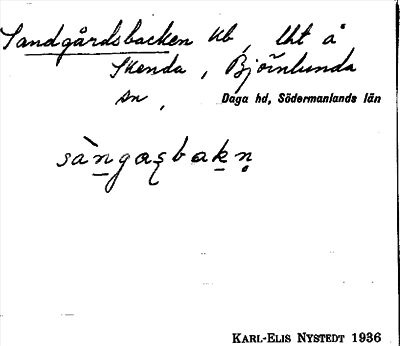 Sandgårdsbacken ub, lht å
Skenda, Björnlunda
sn, Daga hd, Södermanlands län
sàn̲gaʂbak̲n̥
KARL-ELIS NYSTEDT 1936